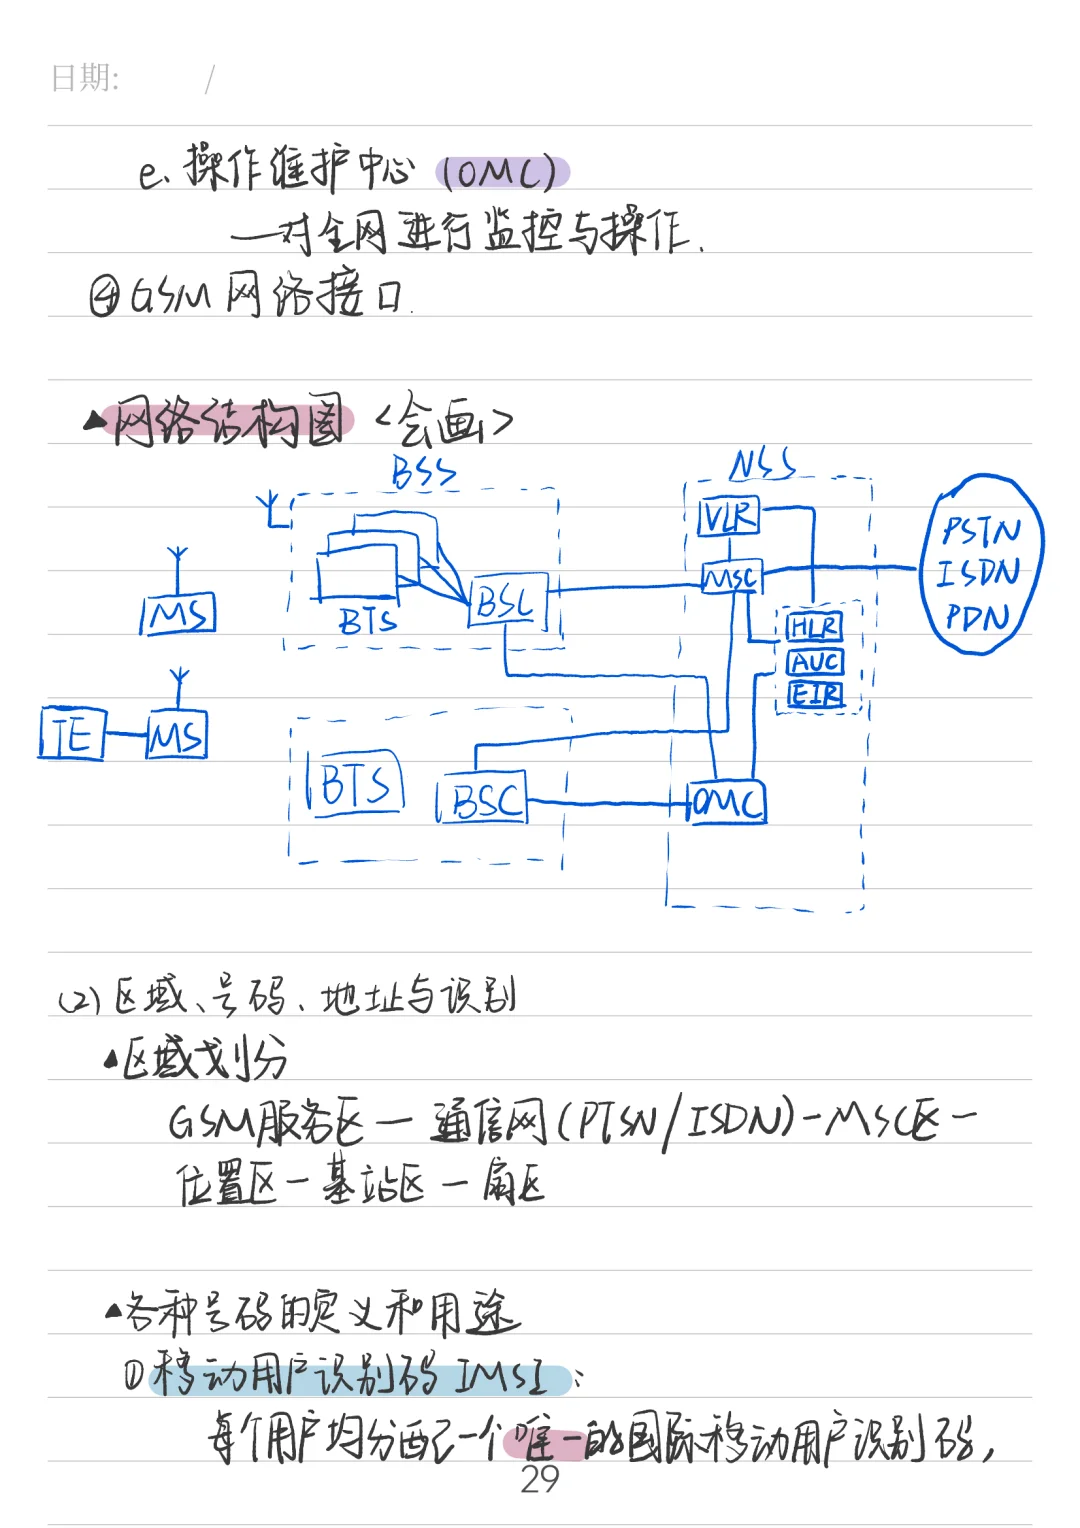 日期: /
e. 操作维护中心 (OMC)
—对全网进行监控与操作.
④GSM 网络接口.
▲网络结构图 <会画>
BSS
NSS
VLR
PSTN
MSC
ISDN
BSC
MS
BTS
HLR
PDN
AUC
EIR
TE
MS
BTS
BSC
OMC
(2) 区域、号码、地址与识别
▲区域划分
GSM服务区 — 通信网 (PTSN/ISDN) - MSC区 -
位置区 - 基站区 - 扇区
▲各种号码的定义和用途
① 移动用户识别码 IMSI:
每个用户均分配一个唯一的国际移动用户识别码,
29